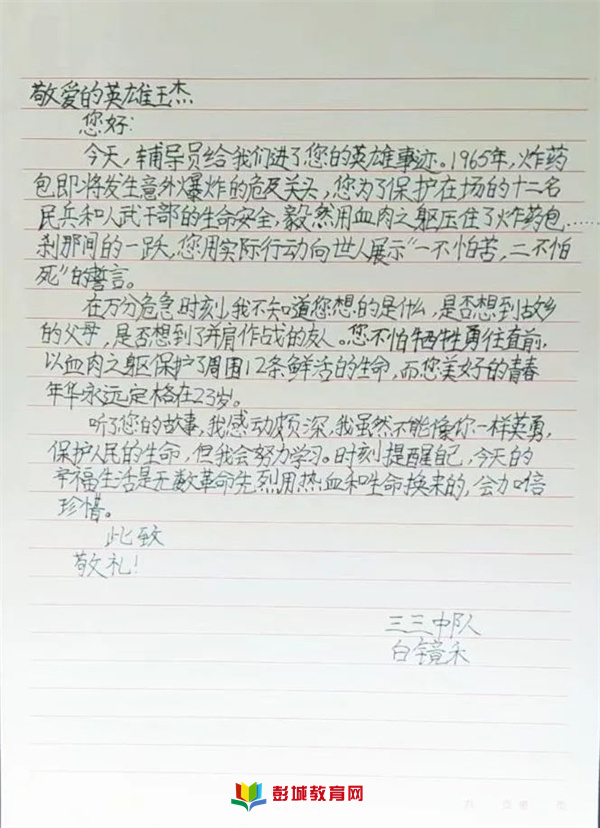 敬爱的英雄王杰
您好:
今天,辅导员给我们进了您的英雄事迹。1965年,炸药
包即将发生意外爆炸的危及关头,您为了保护在场的十二名
民兵和人武干部的生命安全,毅然用血肉之躯压住了炸药包……
刹那间的一跃,您用实际行动向世人展示“一不怕苦,二不怕
死”的誓言。
在万分危急时刻,我不知道您想的是什么,是否想到故乡
的父母,是否想到了并肩作战的友人。您不怕牺牲勇往直前,
以血肉之躯保护了周围12条鲜活的生命,而您美好的青春
年华永远定格在23岁。
听了您的故事,我感动颇深,我虽然不能像你一样英勇,
保护人民的生命,但我会努力学习。时刻提醒自己,今天的
幸福生活是无数革命先烈用热血和生命换来的,会加倍
珍惜。
此致
敬礼!
三三中队
白镜禾
彭城教育网